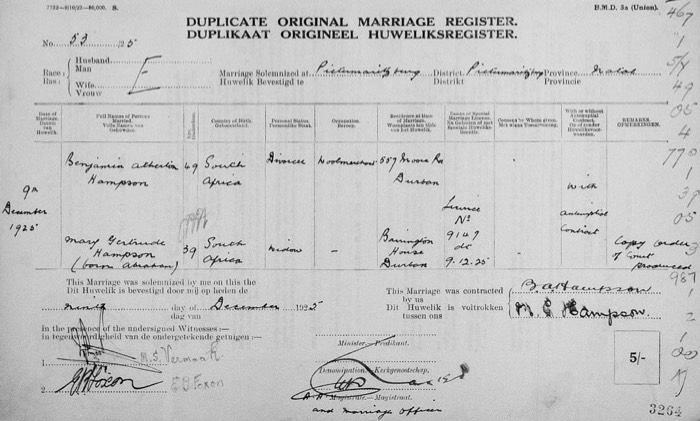 7722—8/10/23—80,000. S.
B.M.D. 3a (Union).
DUPLICATE ORIGINAL MARRIAGE REGISTER.
DUPLIKAAT ORIGINEEL HUWELIKSREGISTER.
No. 53 1925
467
1
Race: Husband
Ras: Man
Wife
Vrouw
E
Marriage Solemnized at Pietermaritzburg District Pietermaritzburg Province Natal
Huwelik Bevestigd te Distrikt Provincie
5/4
49
05
4
Date of Marriage. Datum van Huwelik.
Full Names of Persons Married. Volle Namen van Gehuwden.
Country of Birth. Geboorteland.
Personal Status. Persoonlike Staat.
Occupation. Beroep.
Residence at Date of Marriage. Woonplaats ten tijde van het Huwelik.
Consent by Whom given. Met wiens Toestemming.
With or without Antenuptial Contract.
REMARKS. OPMERKINGEN.
770
1
39
05
3
987
2
1
9th December 1925
Benjamin Atherton Hampson
49
South Africa
Divorcee
Woolmerchant
557 Moore Rd Durban
Mary Gertrude Hampson (born Abraham)
39
South Africa
Widow
–
Barrington House Durban
Licence No 9147 dd 9.12.25
With antenuptial Contract
Copy order of Court produced
This Marriage was solemnized by me on this the
Dit Huwelik is bevestigd door mij op heden de
ninth day of December 1925
dag van
This Marriage was contracted by us
Dit Huwelik is voltrokken tussen ons
B A Hampson
M. G. Hampson
In the presence of the undersigned Witnesses:—
In tegenwoordigheid van de ondergetekende getuigen:—
1.
M. S. Vermaak
2. E B Foxon
E B Foxon
Minister—Predikant.
Denomination—Kerkgenootschap.
Magistrate—Magistraat.
and marriage officer
5/-
3264